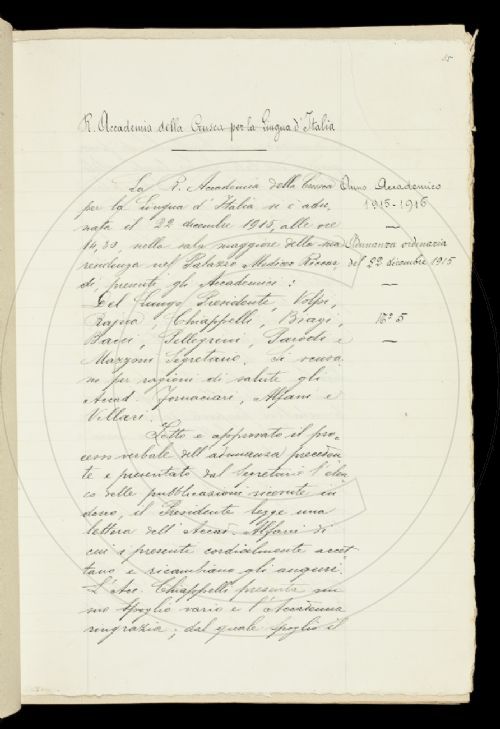 85
R. Accademia della Crusca per la Lingua d'Italia
La R. Accademia della Crusca
per la Lingua d'Italia si è adu-
nata il 22 dicembre 1915, alle ore
14,30, nella sala maggiore della sua
residenza nel Palazzo Mediceo Riccar-
di, presenti gli Accademici:
Del Lungo Presidente, Volpi,
Rajna, Chiappelli, Biagi,
Bacci, Pellegrini, Parodi e
Mazzoni Segretario. Si scusa-
no per ragioni di salute gli
Accad. Fornaciari, Alfani e
Villari.
Letto e approvato il pro-
cesso verbale dell'adunanza preceden-
te e presentato dal Segretario l'elen-
co delle pubblicazioni ricevute in
dono, il Presidente legge una
lettera dell'Accad. Alfani di
cui i presenti cordialmente accet-
tano e ricambiano gli auguri.
L'Acc. Chiappelli presenta un
suo spoglio vario e l'Accademia
ringrazia; dal quale spoglio il
Anno Accademico
1915-1916
Adunanza ordinaria
del 22 dicembre 1915
N.° 5